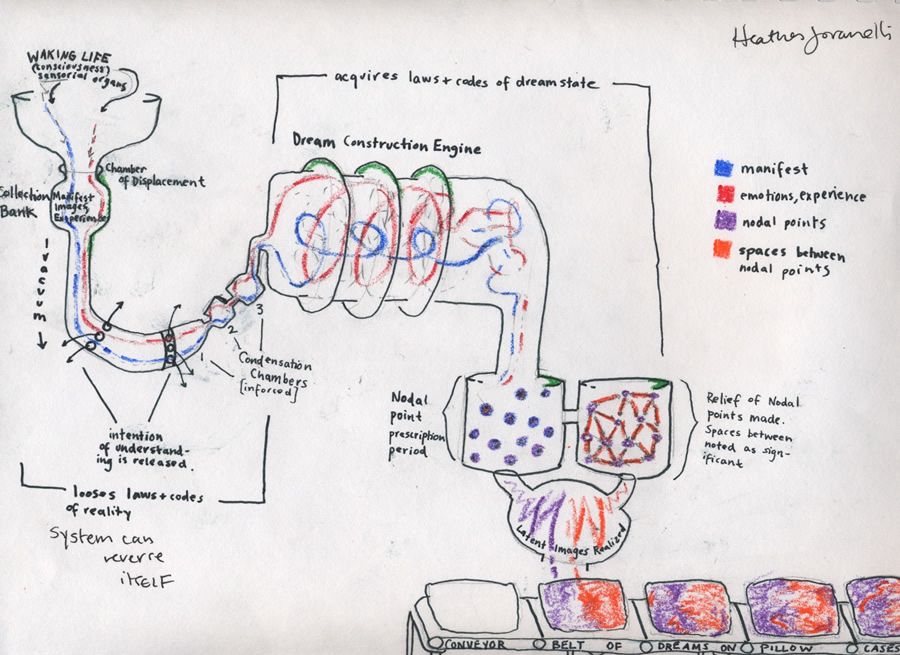 Heather
WAKING LIFE
(consciousness)
sensorial organs
acquires laws + codes of dreamstate
Dream Construction Engine
Chamber
of Displacement
Collection
Bank
Manifest
Images
Experience
vacuum
manifest
emotions, experience
nodal points
spaces between
nodal points
1
2
3
Condensation
Chambers
[inforced]
intention
of understand-
ing is released.
looses laws + codes
of reality
System can
reverse
itself
Nodal
point
prescription
period
Relief of Nodal
points made.
Spaces between
noted as sign-
ificant
Latent Images Realized
CONVEYOR BELT OF DREAMS ON PILLOW CASES